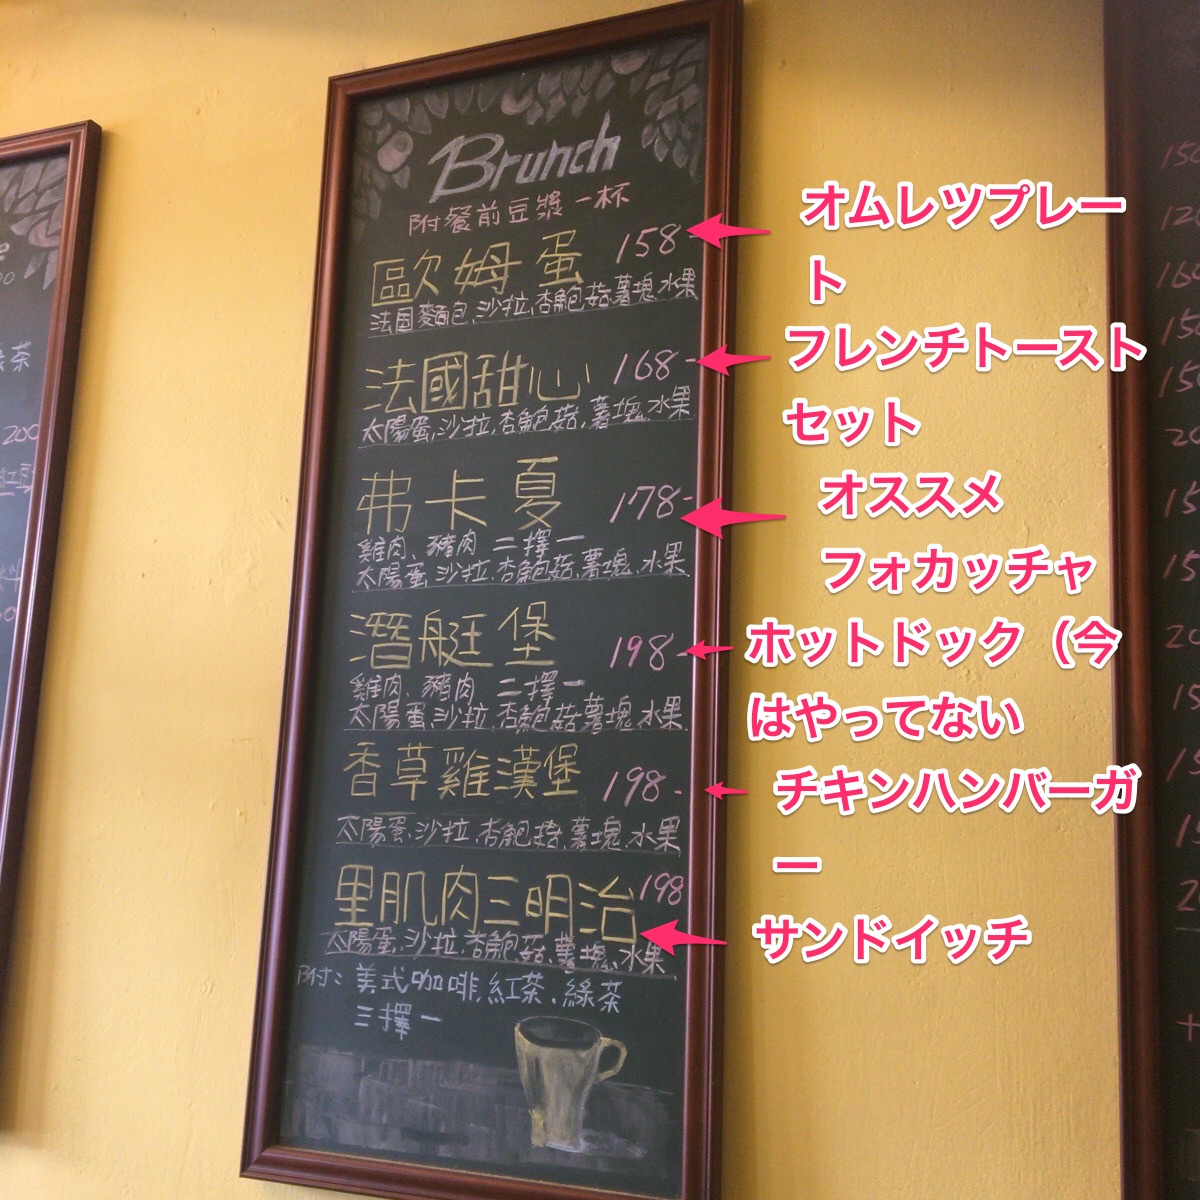 Brunch
附餐前豆漿一杯
歐姆蛋 158-
法国麵包、沙拉、杏鮑菇、薯塊、水果
法國甜心 168-
太陽蛋、沙拉、杏鮑菇、薯塊、水果
弗卡夏 178-
雞肉、豬肉 二擇一
太陽蛋、沙拉、杏鮑菇、薯塊、水果
潛艇堡 198-
雞肉、豬肉 二擇一
太陽蛋、沙拉、杏鮑菇、薯塊、水果
香草雞漢堡 198-
太陽蛋、沙拉、杏鮑菇、薯塊、水果
里肌肉三明治 198
太陽蛋、沙拉、杏鮑菇、薯塊、水果
附：美式咖啡、紅茶、綠茶
三擇一
オムレツプレー
ト
フレンチトースト
セット
オススメ
フォカッチャ
ホットドック（今
はやってない
チキンハンバーガ
ー
サンドイッチ
茶
200
紅豆